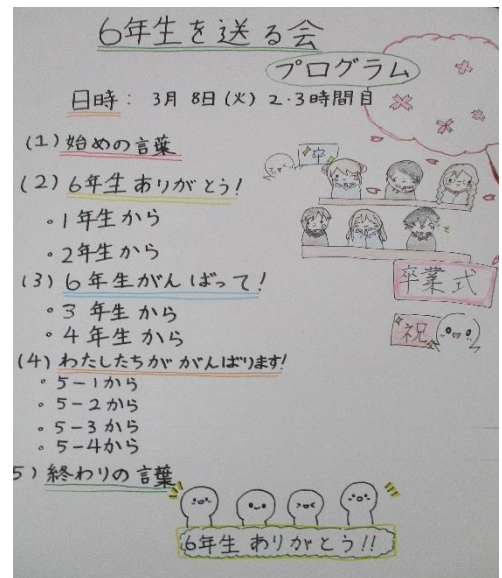 6年生を送る会
プログラム
日時: 3月 8日(火) 2・3時間目
(1) 始めの言葉
(2) 6年生ありがとう!
・1年生から
・2年生から
(3) 6年生がんばって!
・3年生から
・4年生から
(4) わたしたちが がんばります!
・5-1から
・5-2から
・5-3から
・5-4から
5) 終わりの言葉
卒
卒業式
祝
6年生 ありがとう!!